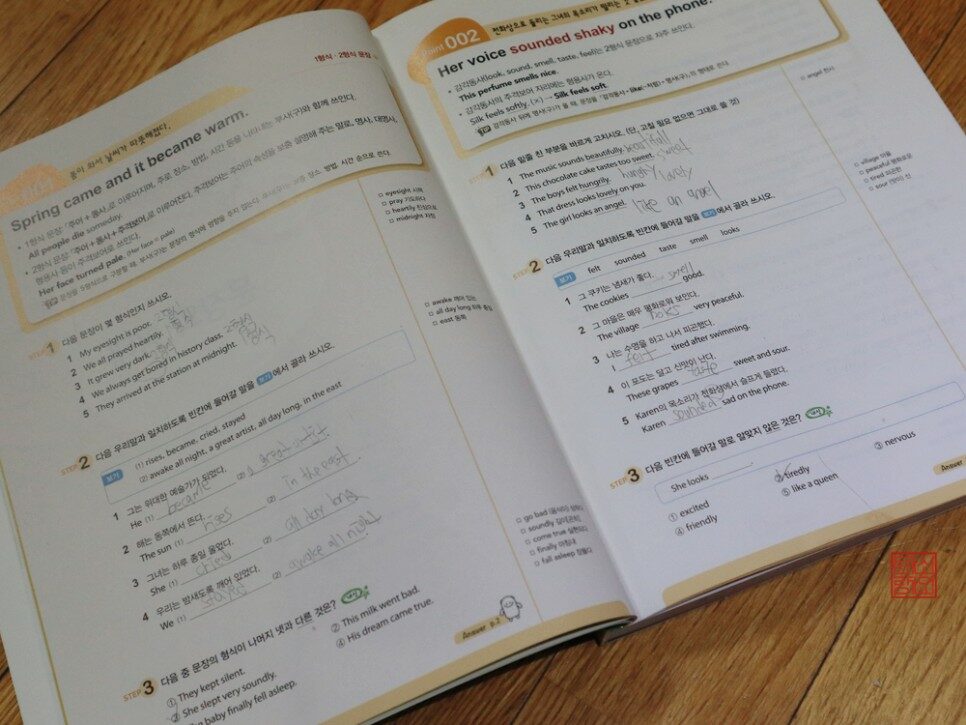 1형식 · 2형식 문장
봄이 와서 날씨가 따뜻해졌다.
Spring came and it became warm.
• 1형식 문장: 「주어 + 동사」로 이루어지며, 주로, 장소, 방법, 시간 등을 나타내는 부사(구)와 함께 쓰인다.
All people die someday.
• 2형식 문장: 「주어+동사+주격보어」로 이루어진다. 주격보어는 주어의 속성을 보충 설명해 주는 말로, 명사, 대명사,
형용사 등이 주격보어로 쓰인다.
Her face turned pale. (Her face = pale)
□ eyesight 시력
□ pray 기도하다
□ heartily 진심으로
□ midnight 자정
STEP 1 다음 문장이 몇 형식인지 쓰시오.
1 My eyesight is poor. 2형식
2 We all prayed heartily.
3 It grew very dark.
4 We always get bored in history class. 2형식
5 They arrived at the station at midnight.
□ awake 깨어 있는
□ all day long 하루 종일
□ east 동쪽
STEP 2 다음 우리말과 일치하도록 빈칸에 들어갈 말을 보기 에서 골라 쓰시오.
보기 (1) rises, became, cried, stayed
(2) awake all night, a great artist, all day long, in the east
1 그는 위대한 예술가가 되었다.
He (1) became (2) a great artist.
2 해는 동쪽에서 뜬다.
The sun (1) rises (2) in the east.
3 그녀는 하루 종일 울었다.
She (1) cried (2) all day long.
4 우리는 밤새도록 깨어 있었다.
We (1) stayed (2) awake all night.
□ go bad (음식이) 상하다
□ soundly 깊이(곤히)
□ come true 실현되다
□ finally 마침내
□ fall asleep 잠들다
STEP 3 다음 중 문장의 형식이 나머지 넷과 다른 것은? 내신
① They kept silent.
② This milk went bad.
③ She slept very soundly.
④ His dream came true.
baby finally fell asleep.
Answer p.2
Point 002 전화상으로 들리는 그녀의 목소리가 떨리는
Her voice sounded shaky on the phone.
• 감각동사(look, sound, smell, taste, feel)는 2형식 문장으로 자주 쓰인다.
This perfume smells nice.
• 감각동사의 주격보어 자리에는 형용사가 온다.
Silk feels softly. (×) → Silk feels soft.
□ angel 천사
STEP 1 다음 밑줄 친 부분을 바르게 고치시오. (단, 고칠 필요 없으면 그대로 쓸 것)
1 The music sounds beautifully. beautifull
2 This chocolate cake tastes too sweet. sweet
3 The boys felt hungrily. hungry
4 That dress looks lovely on you. lovely
5 The girl looks an angel. like an angel
□ village 마을
□ peaceful 평화로운
□ tired 피곤한
□ sour (맛이) 신
STEP 2 다음 우리말과 일치하도록 빈칸에 들어갈 말을 보기 에서 골라 쓰시오.
보기 felt sounded taste smell looks
1 그 쿠키는 냄새가 좋다.
The cookies smell good.
2 그 마을은 매우 평화로워 보인다.
The village looks very peaceful.
3 나는 수영을 하고 나서 피곤했다.
I felt tired after swimming.
4 이 포도는 달고 신맛이 난다.
These grapes taste sweet and sour.
5 Karen의 목소리가 전화상에서 슬프게 들렸다.
Karen sounded sad on the phone.
STEP 3 다음 빈칸에 들어갈 말로 알맞지 않은 것은? 내신
She looks
① excited
② tiredly
③ nervous
④ friendly
⑤ like a queen
Answer